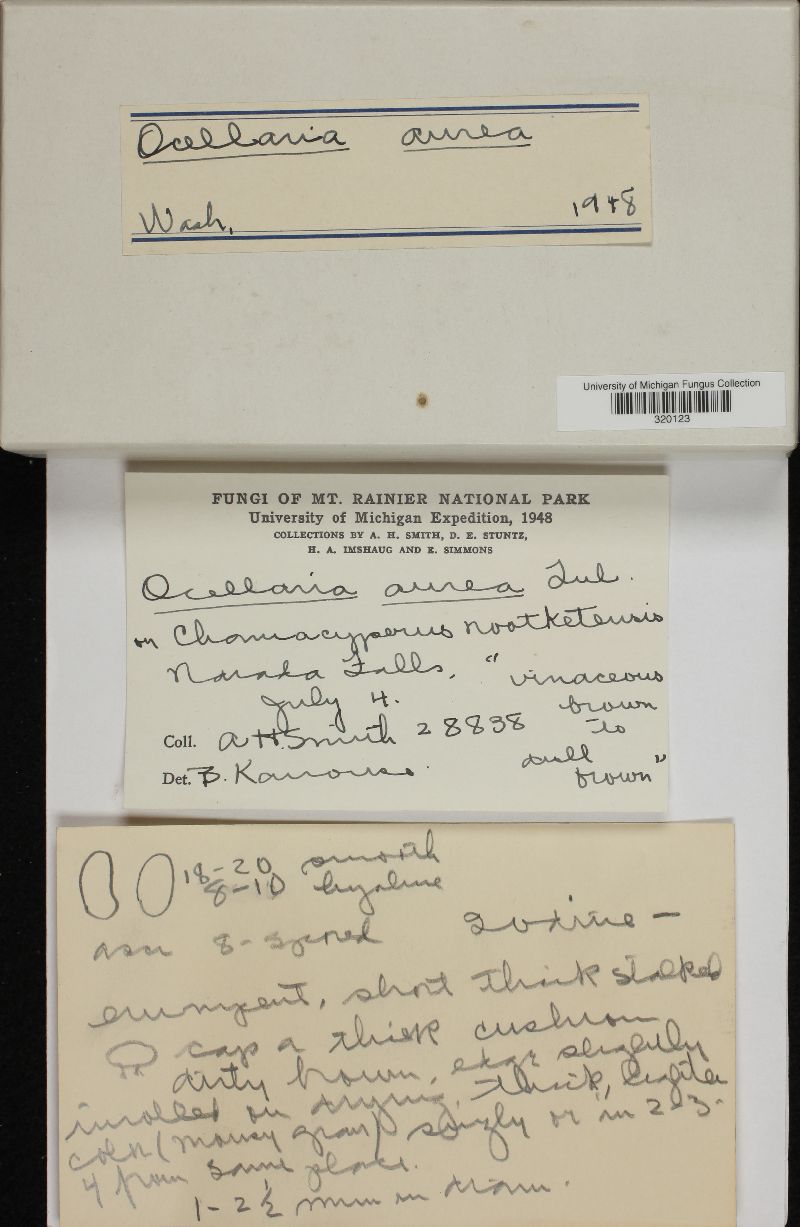 Ocellaria aurea
Wash, 1948
University of Michigan Fungus Collection
320123
FUNGI OF MT. RAINIER NATIONAL PARK
University of Michigan Expedition, 1948
COLLECTIONS BY A. H. SMITH, D. E. STUNTZ,
H. A. IMSHAUG AND E. SIMMONS
Ocellaria aurea Tul.
on Chamacyperus nootketensis
Narada Falls. "vinaceous
July 4. brown
Coll. A H Smith 28838 to
dull
Det. B. Kanouse. brown"
18-20 smooth
8-10 hyaline
asci 8-spored Iodine -
erumpent, short thick stalked
cap a thick cushion
dirty brown, edge slightly
inrolled on drying, thick, lighter
color (mousy gray) singly or in 2-3-
4 from same place.
1-2½ mm in diam.